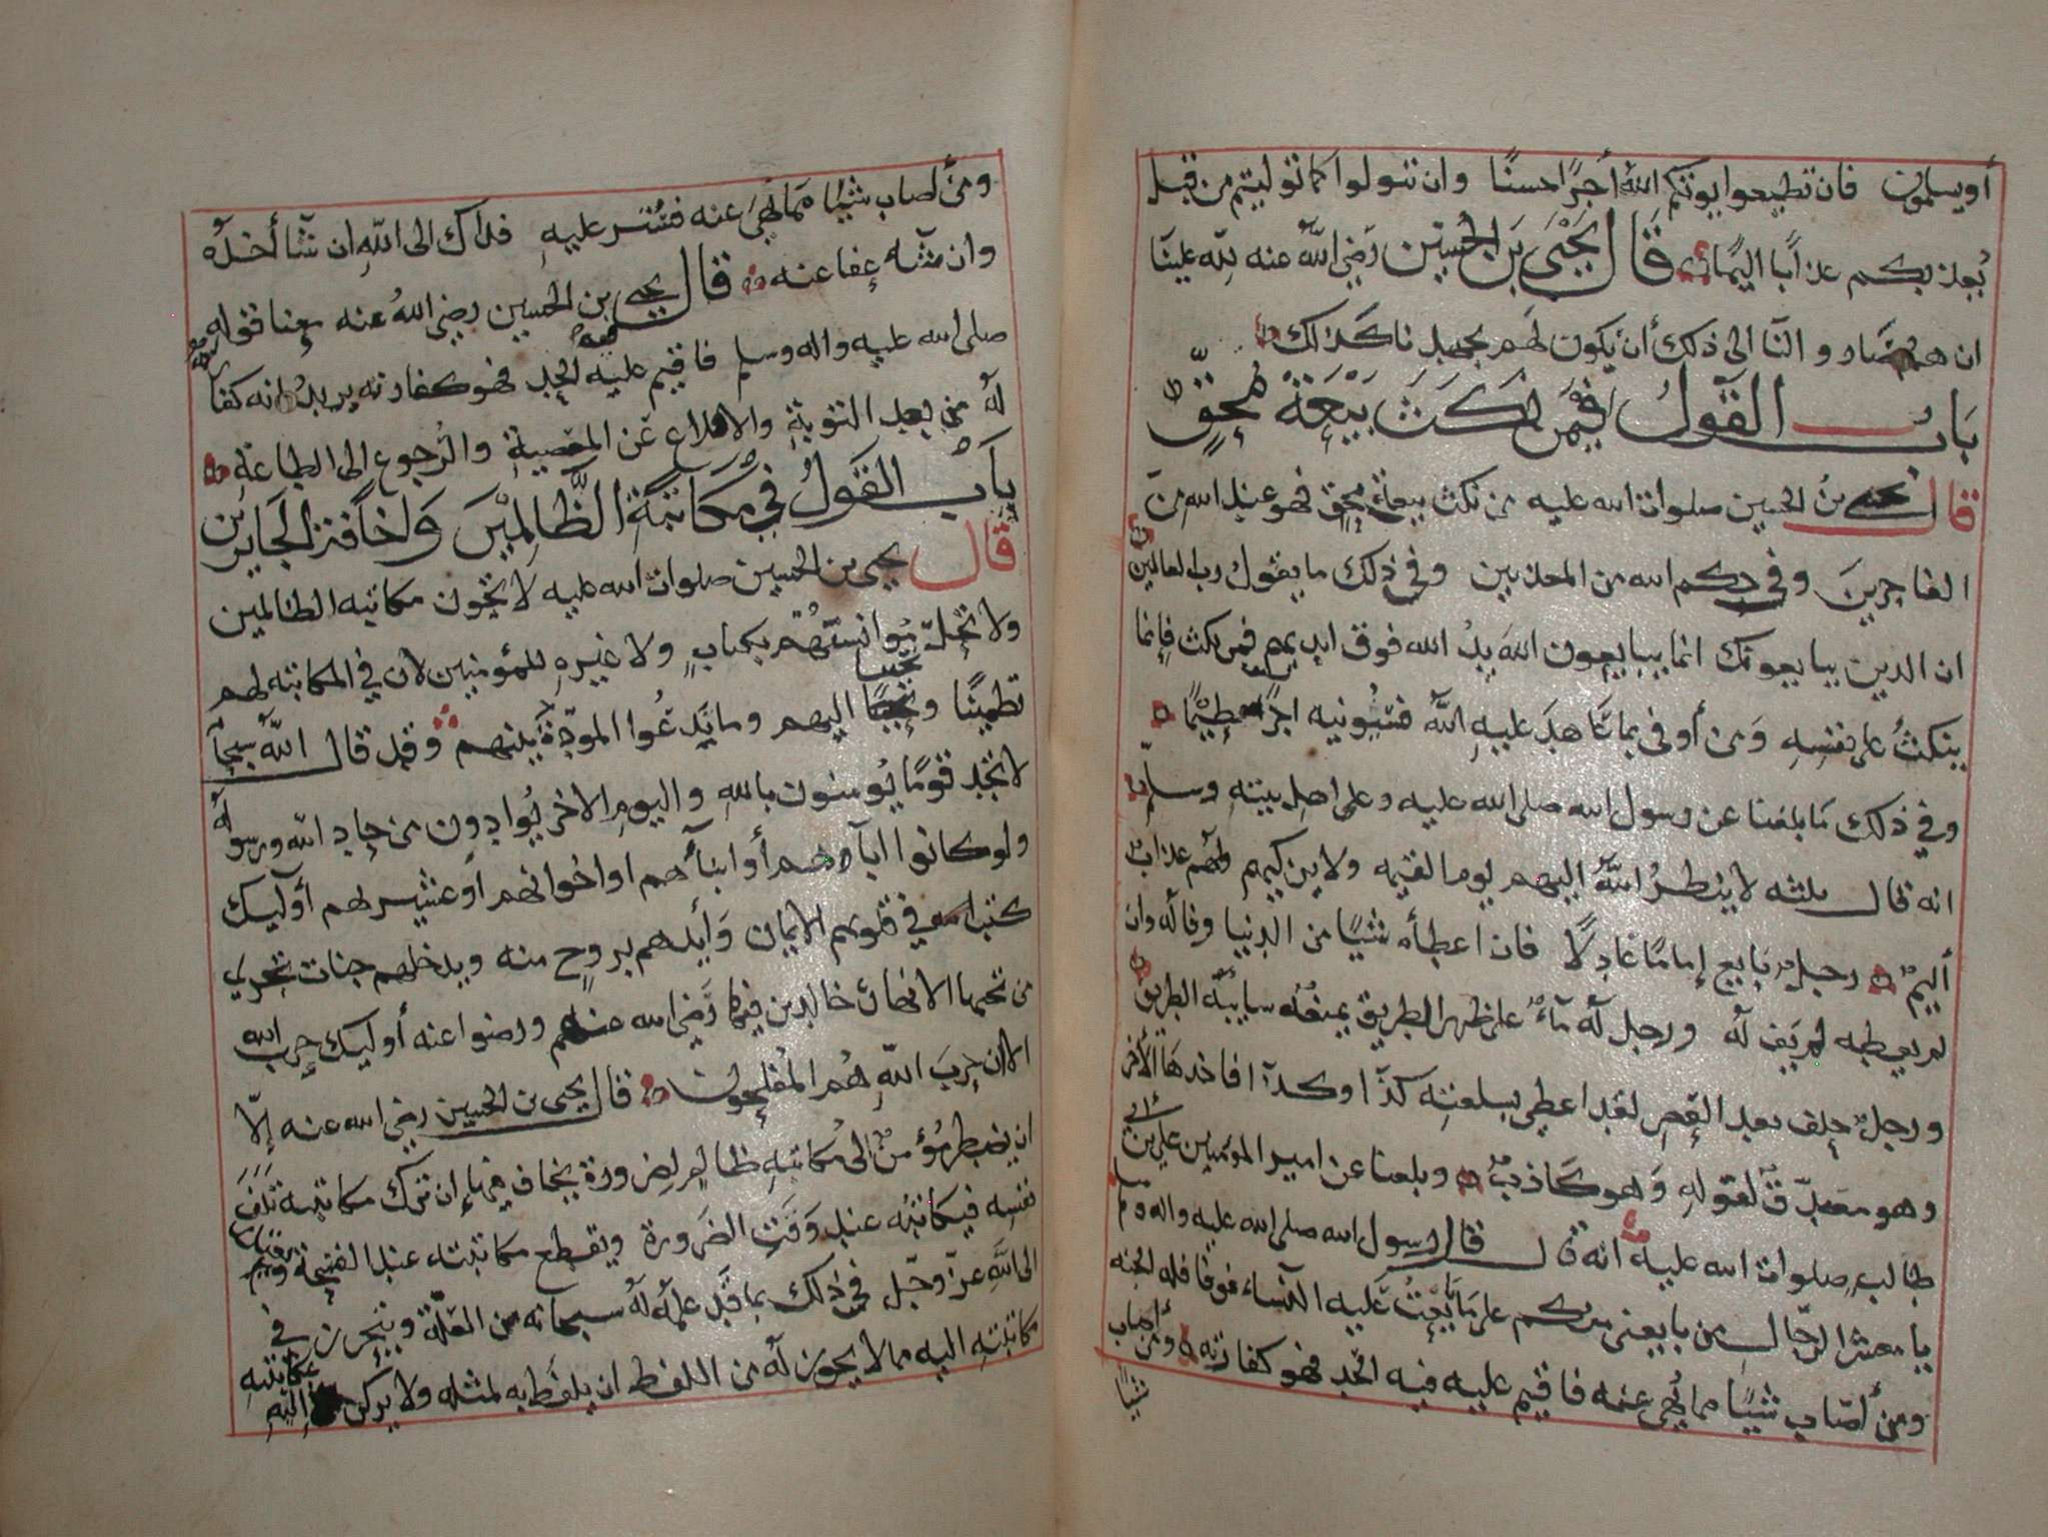 أو يسلمون فان تطيعوا يوتكم الله أجرًا حسنًا وان تتولوا كما توليتم من قبل
يُعذبكم عذابًا اليمًا قَالَ يَحْيَى بن الحُسَين رَضي الله عنه لله علينا
ان هم صارو والنا الى ذلك أن يكون لهم بجهدنا كذلك
بَابُ القَولُ فيمَن نَكَثَ بَيْعَةَ مُحِقٍّ
قال يحيى بنُ الحسين صلوات الله عليه من نكث بيعة محق فهو عند الله من
الفاجرينَ وفي حكم الله من المعذبين وفي ذلك ما يقولُ رب العالمين
ان الذين يبايعونك انما يبايعون الله يدُ الله فوق ايديهم فمن نكث فإنما
ينكثُ على نفسِهِ وَمن أوفى بما عَاهدَ عليهِ اللهُ فسيوتيه اجرًا عظيمًا
وفي ذلك مَا بلغنا عن رسول الله صلى الله عليه وعلى اهل بيتهِ وسلم
انه قال ثلثه لا ينظرُ اللهُ اليهم يوم القيمه ولا يزكيهم ولهم عذاب
أليمٌ رجلٌ بايع إمامًا عَادِلًا فان اعطاه شيًا من الدنيا وفا له وان
لم يعطه لم يَفِ له ورجل له مآءٌ على ظهر الطريق يمنعُه سابلة الطريق
ورجلٌ حلف بعد العصر لقد اعطي بسلعته كذا وكذا فاخذهَا الأخر
وهو مصدّقٌ لقوله وَهو كَاذبٌ وبلغنا عن امير المومنين علي بن أبي
طالب صلوات الله عليه انه قال قال رسول الله صلى الله عليه واله وسلم
يا معشر الرجال من بايعني منكم على مَا بَايَعْتُ عَليه النساء فوفا فله الجنه
ومن أصَاب شيًا مما نُهي عنه فاقيم عليه فيه الحَد فهو كفارته ومن أصاب
شيًا
ومن اصاب شيًا ممَا نُهيَ عنه فسُتر عليهِ فذاك الى اللهِ ان شآ أخذه
وان شآء عفا عنه قال يحيى بن الحسين رضي اللهُ عنه معنا قوله
صلى الله عليه واله وسلم فاقيم عليه الحد فهو كفارته يريدُ انه كفارة
لهُ من بعد التوبةِ والاقلاع عَن المعصيةِ والرُجوع الى الطاعةِ
بَابُ القَولُ في مُكَاتَبَةِ الظَّالِمِيْنَ وَاخَافةِ الجَايرين
قال يحيى بن الحسين صلوات الله عليه لا تجُوز مكاتبه الظالمين
ولا تَحِلّ مُوانستُهُم بكتابٍ ولا غيرهِ للمؤمنين لان في المكاتبه لهم
تطمينًا وتحببًا اليهم وما يَدعُوا المودّةَ بينهم وقد قال اللهُ سبحانه
لا تجد قومًا يُومنون باللهِ واليومِ الاخرِ يُوادون من حاد الله ورسوله
ولو كانوا ابآءهم أو ابنآءهم او اخوانهم أو عشيرتهم أوليك
كتب الله في قلوبهم الايمان وَأيدهم بروحٍ منه ويدخلهم جنات تجري
من تحتها الانهار خالدين فيها رَضي الله عنهم ورضوا عنه أوليك حزب الله
الا ان حزبَ اللهِ هُم المُفلحون قال يحيى بن الحسين رضي الله عنه إلّا
ان يضطر مُؤمنٌ الى مُكاتبهِ ظالم لضرورة يخاف فيها إن ترك مكاتبته تَلَفَ
نفسِه فيكاتبُه عند وَقتِ الضَرورة ويقطع مكاتبته عند الفسحةِ
الى اللهِ عزّ وجّل في ذلك بما قَد علمَهُ لهُ سبحانه من العِلَّةِ ويتحرز في
مكاتبتهِ اليه مما لا يجوز له من اللفظ ان يلفظ به لمثله ولا يركن اليهِ